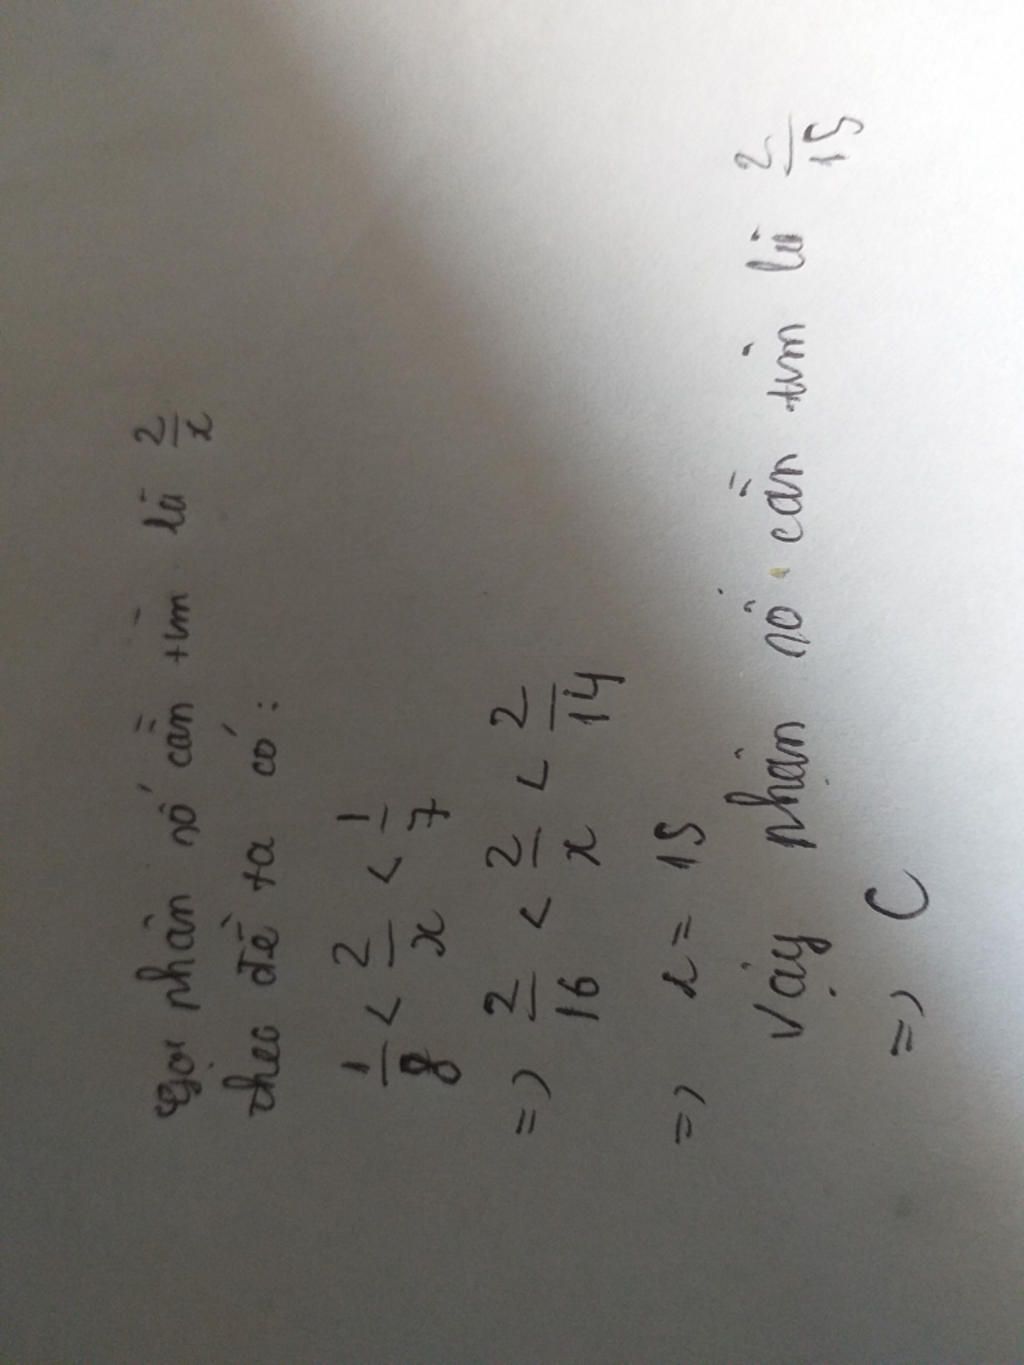 Gọi phân số cần tìm là 2/x
theo đề ta có:
1/8 < 2/x < 1/7
=) 2/16 < 2/x < 2/14
=) x = 15
Vậy phận số cần tìm là 2/15
=) C